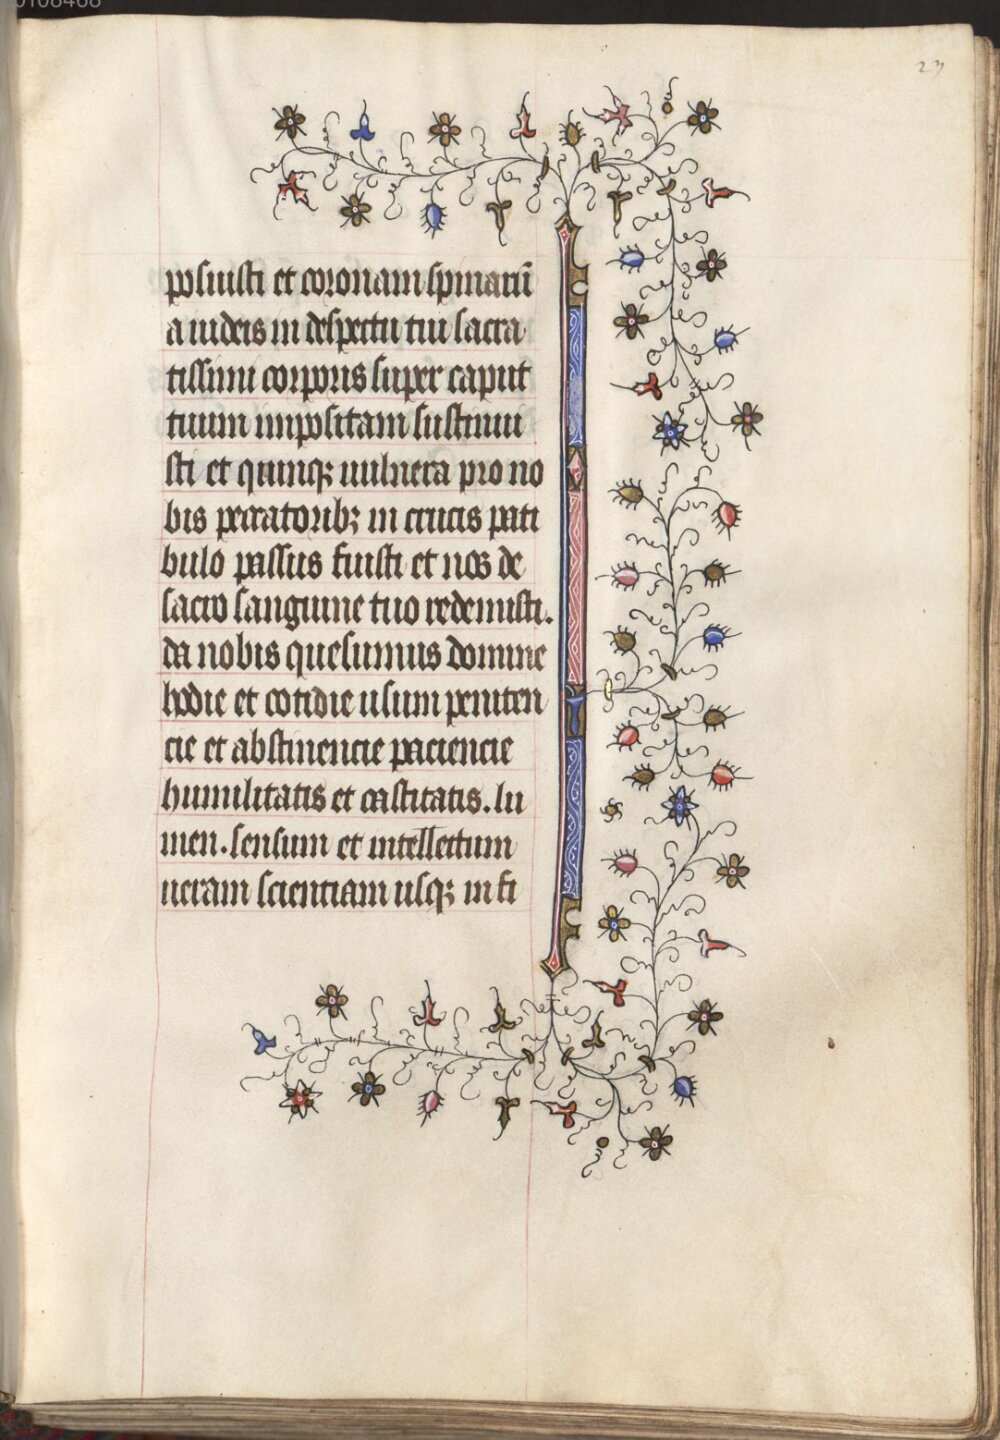 0108468
27
posuisti et coronam spinarū
a iudeis in despectu tui sacra
tissimi corporis super caput
tuum impositam sustinui
sti et quinqꝫ uulnera pro no
bis peccatoribꝫ in crucis pati
bulo passus fuisti et nos de
sacro sanguine tuo redemisti.
da nobis quesumus domine
hodie et cotidie usum peniten
cie et abstinencie paciencie
humilitatis et castitatis. lu
men. sensum et intellectum
ueram scientiam usqꝫ in fi